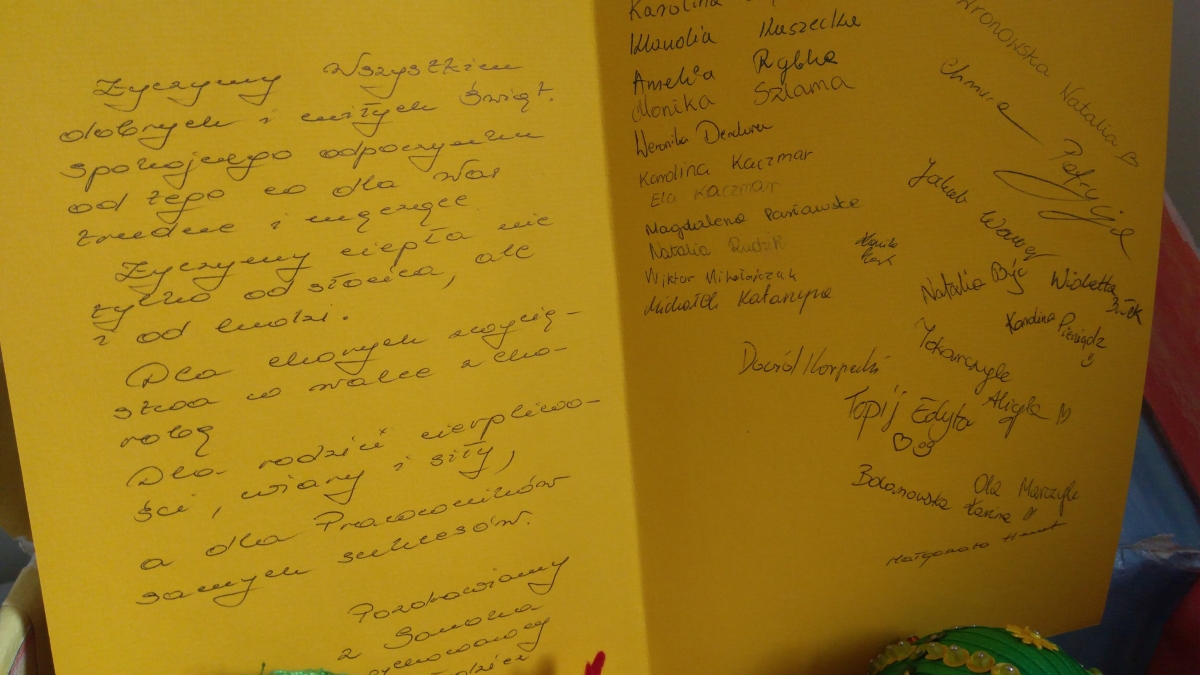 Życzymy Wszystkim
dobrych i miłych Świąt.
spokojnego odpoczynku
od tego co dla Was
trudne i męczące
Życzymy ciepła nie
tylko od słońca, ale
i od ludzi.
Dla chorych zwycię-
stwa w walce z cho-
robą
Dla rodzin cierpliwo-
ści, wiary i siły,
a dla Pracowników
samych sukcesów.
Pozdrawiamy
z Sanoka
Karolina
Klaudia Kuszecka
Amelia Rybka
Monika Szlama
Weronika Dendura
Karolina Kaczmar
Ela Kaczmar
Magdalena Paniawska
Natalia Rudzik
Wiktor Mikołajczuk
Michałek Katarzyna
Natalia B
Chmura Patrycja
Jakub
Natalia Być Wioletta
Karolina Pieniądz
Tokarczyk
Alicja M
Dawid Korpecki
Topij Edyta
Bobanowska Karina
Ola Marczyk
Małgorzata